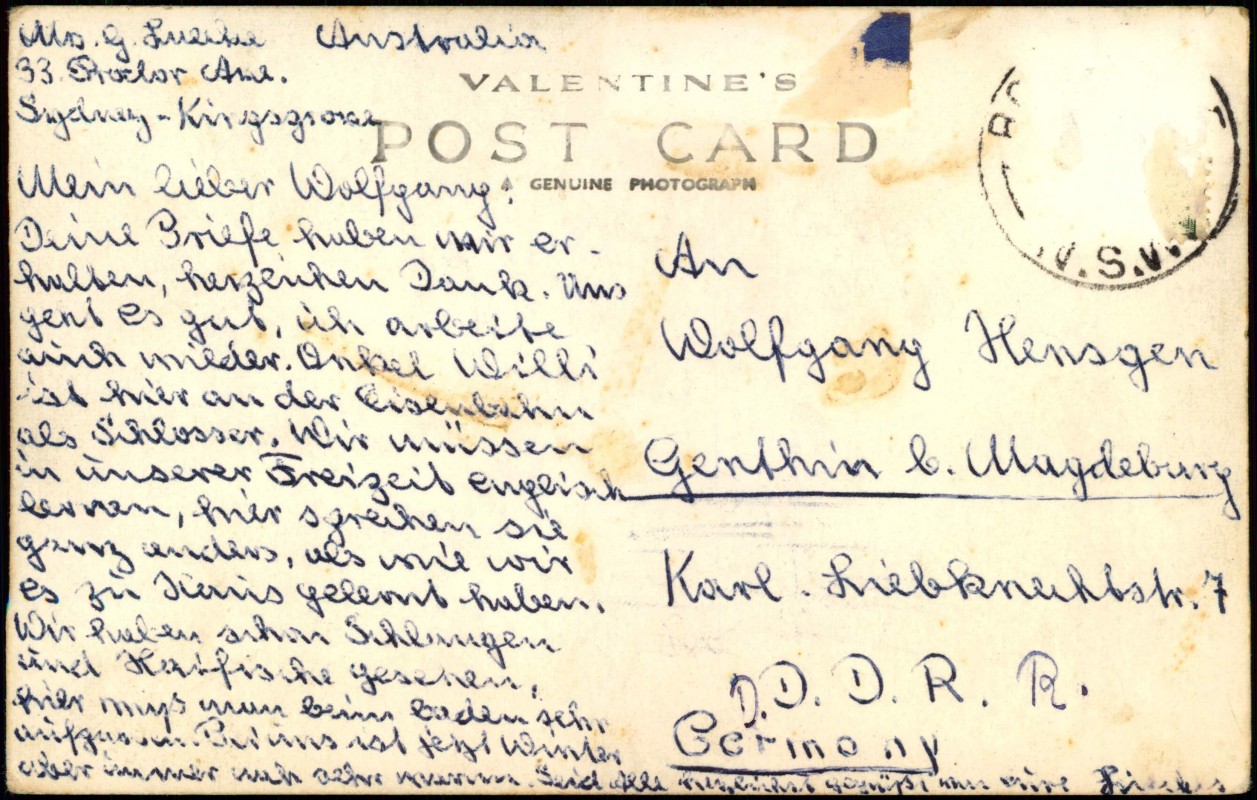 Mrs. G. Luecke Australia
33 Proctor Ave.
Sydney - Kingsgrove
VALENTINE'S
POST CARD
A GENUINE PHOTOGRAPH
N.S.W.
Mein lieber Wolfgang!
Deine Briefe haben wir er-
halten, herzlichen Dank. Uns
geht es gut, ich arbeite
auch wieder. Onkel Willi
ist hier an der Eisenbahn
als Schlosser. Wir müssen
in unserer Freizeit englisch
lernen, hier sprechen sie
ganz anders, als wie wir
es zu Haus gelernt haben.
Wir haben schon Schlangen
und Haifische gesehen,
hier muß man beim baden sehr
aufpassen. Bei uns ist jetzt Winter
aber immer noch sehr warm. Seid alle herzlichst gegrüßt von
An
Wolfgang Hensgen
Genthin b. Magdeburg
Karl-Liebknechtstr. 7
D. D. R.
Germany